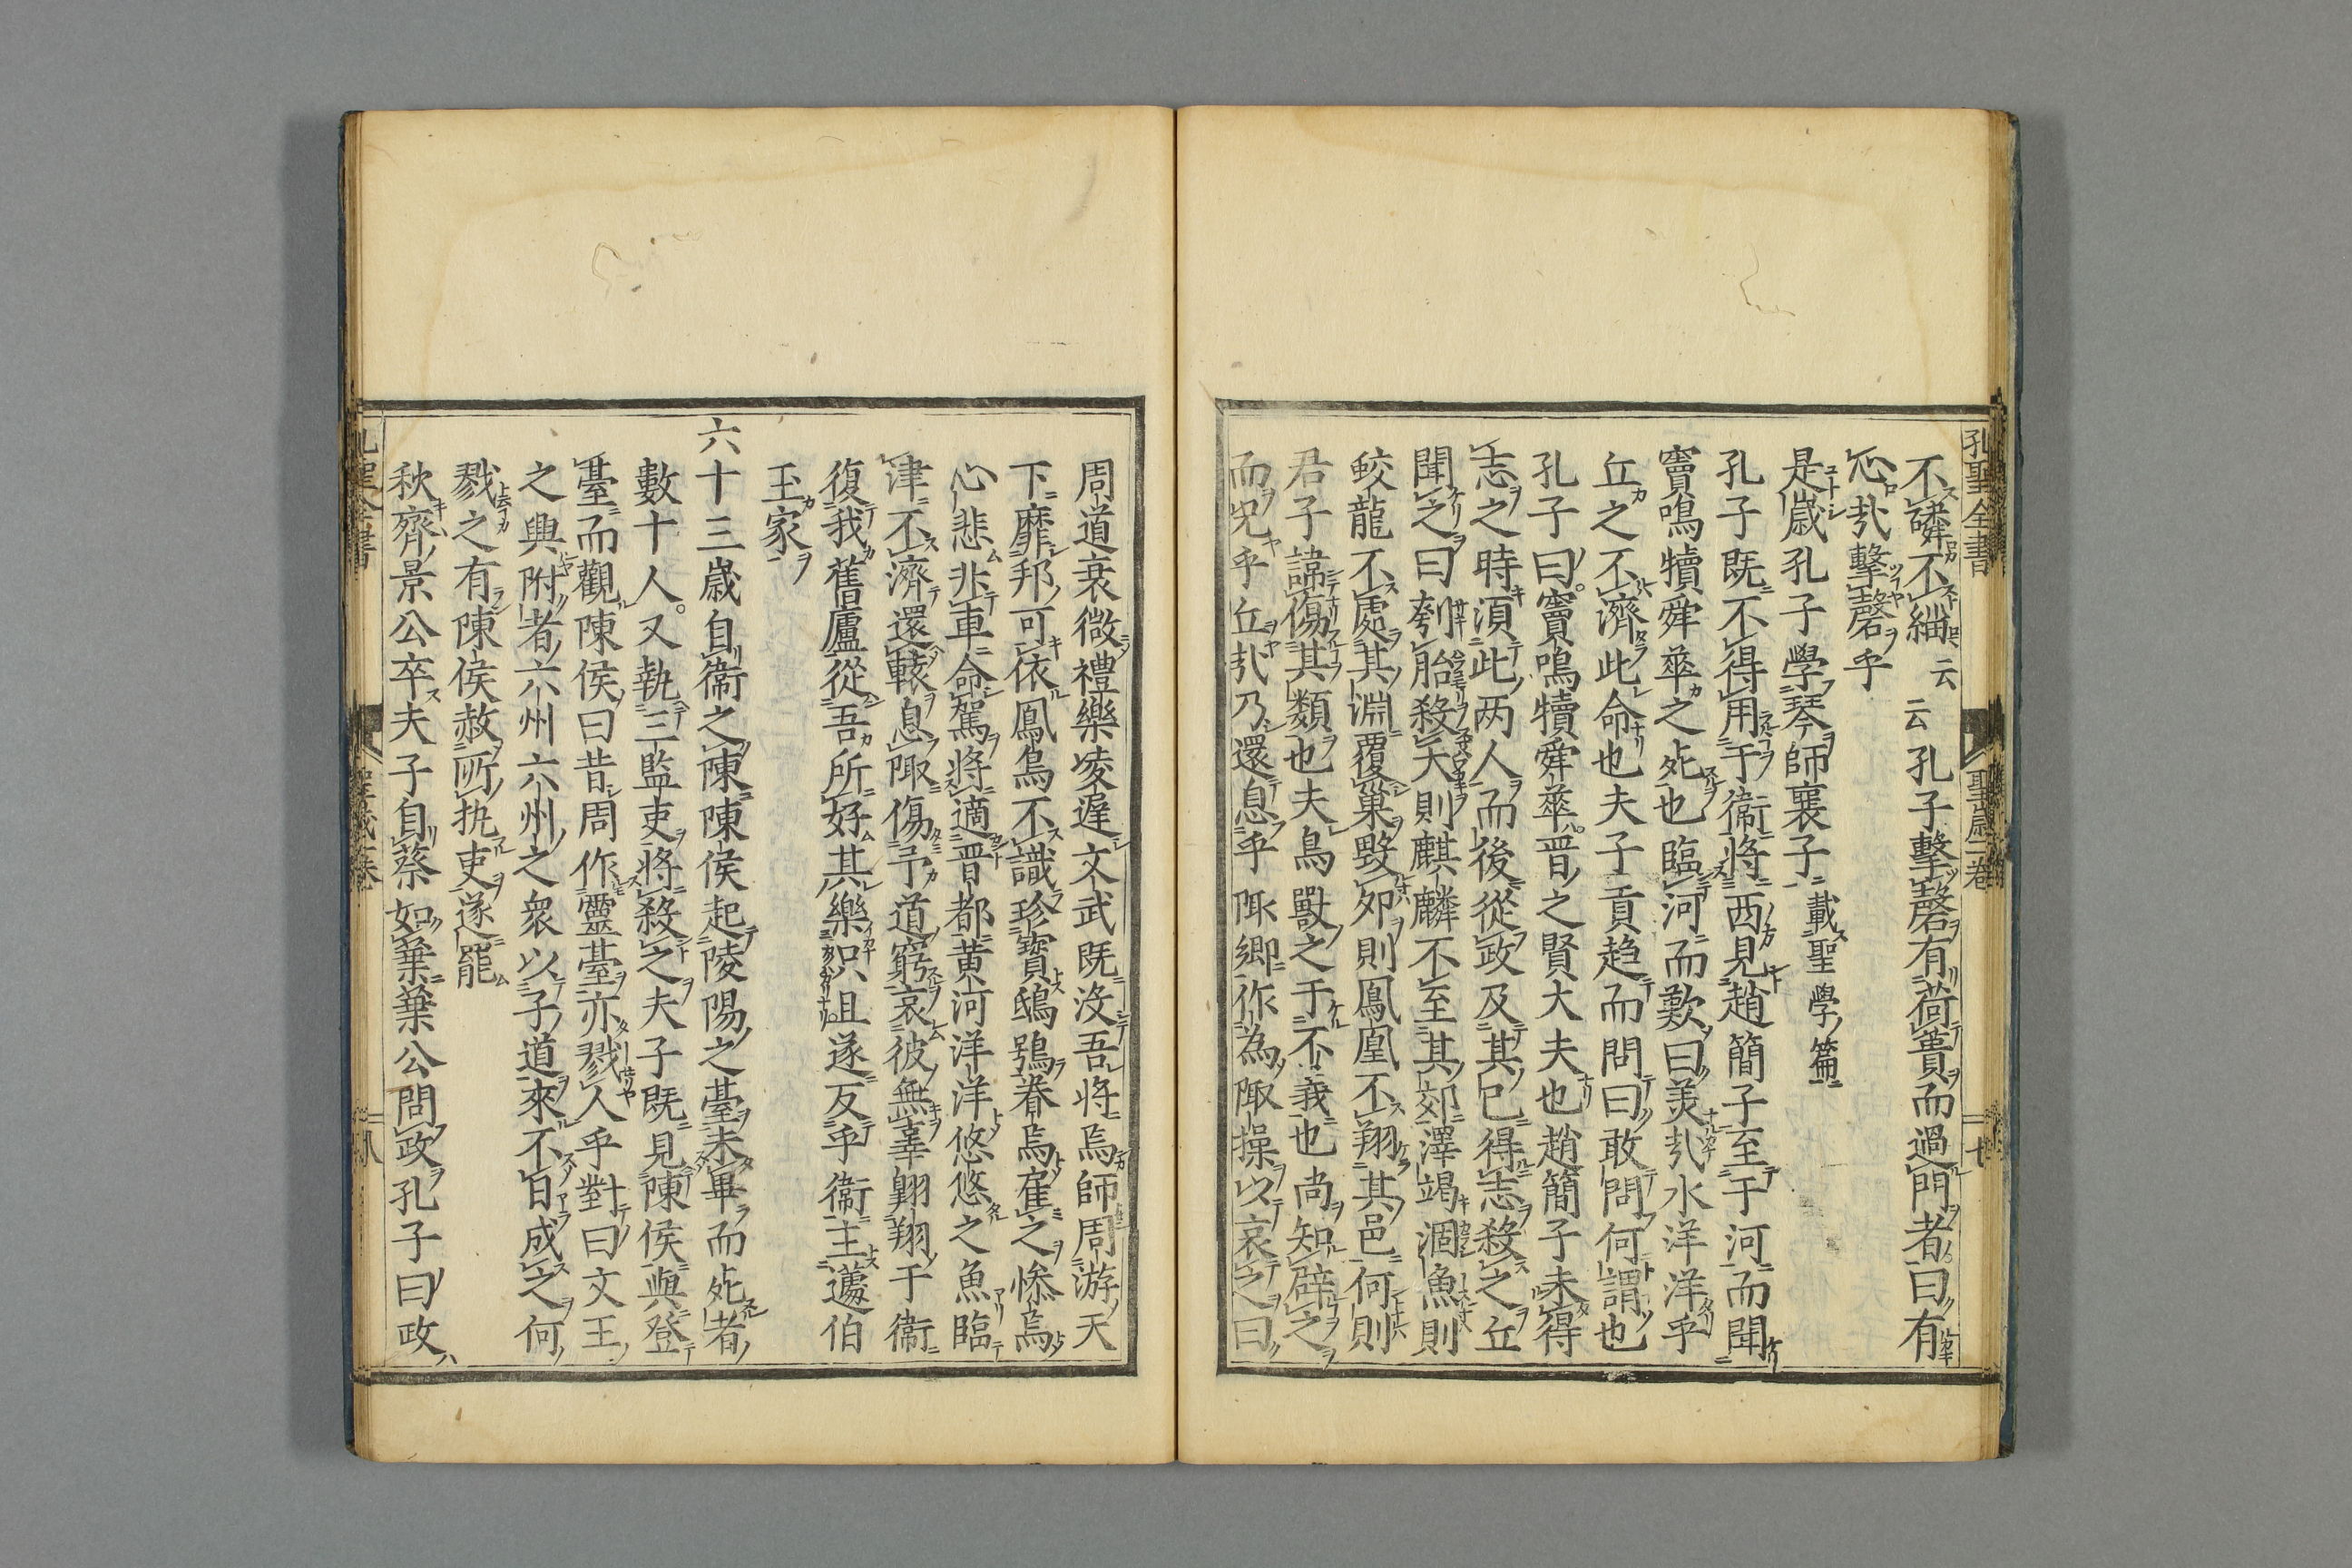 孔聖全書 聖蹟二卷 二七
不磷不緇云云孔子擊磬有荷蕢而過門者曰有
心㢤擊磬乎
是歲孔子學琴師襄子載聖學篇
孔子既不得用于衞將西見趙簡子至于河而聞
竇鳴犢舜華之死也臨河而歎曰美㢤水洋洋乎
丘之不濟此命也夫子貢趋而問曰敢問何謂也
孔子曰竇鳴犢舜華晋之賢大夫也趙簡子未得
志之時須此两人而後從政及其已得志殺之丘
聞之曰刳胎殺夭則麒麟不至其郊澤竭涸魚則
蛟龍不處其淵覆巢毀夘則鳳凰不翔其邑何則
君子諱傷其類也夫鳥獸之于不義也尚知辟之
而况乎丘㢤乃還息乎陬鄉作為陬操以哀之曰
周道衰微禮樂凌遲文武既沒吾將焉師周游天
下靡邦可依鳳鳥不識珍寳鴟鴞眷焉顧之慘焉
心悲非車命駕將適晋都黄河洋洋悠悠之魚臨
津不濟還轅息陬傷予道窮哀彼無辜翺翔于衞
復我舊廬從吾所好其樂只且遂反乎衞主蘧伯
玉家
六十三歲自衞之陳陳侯起陵陽之臺未畢而死者
數十人又執三監吏將殺之夫子既見陳侯與登
臺而觀陳侯曰昔周作靈臺亦戮人乎對曰文王
之興附者六州六州之衆以子道來不日成之何
戮之有陳侯赦所执吏遂罷
秋齊景公卒夫子自蔡如葉葉公問政孔子曰政